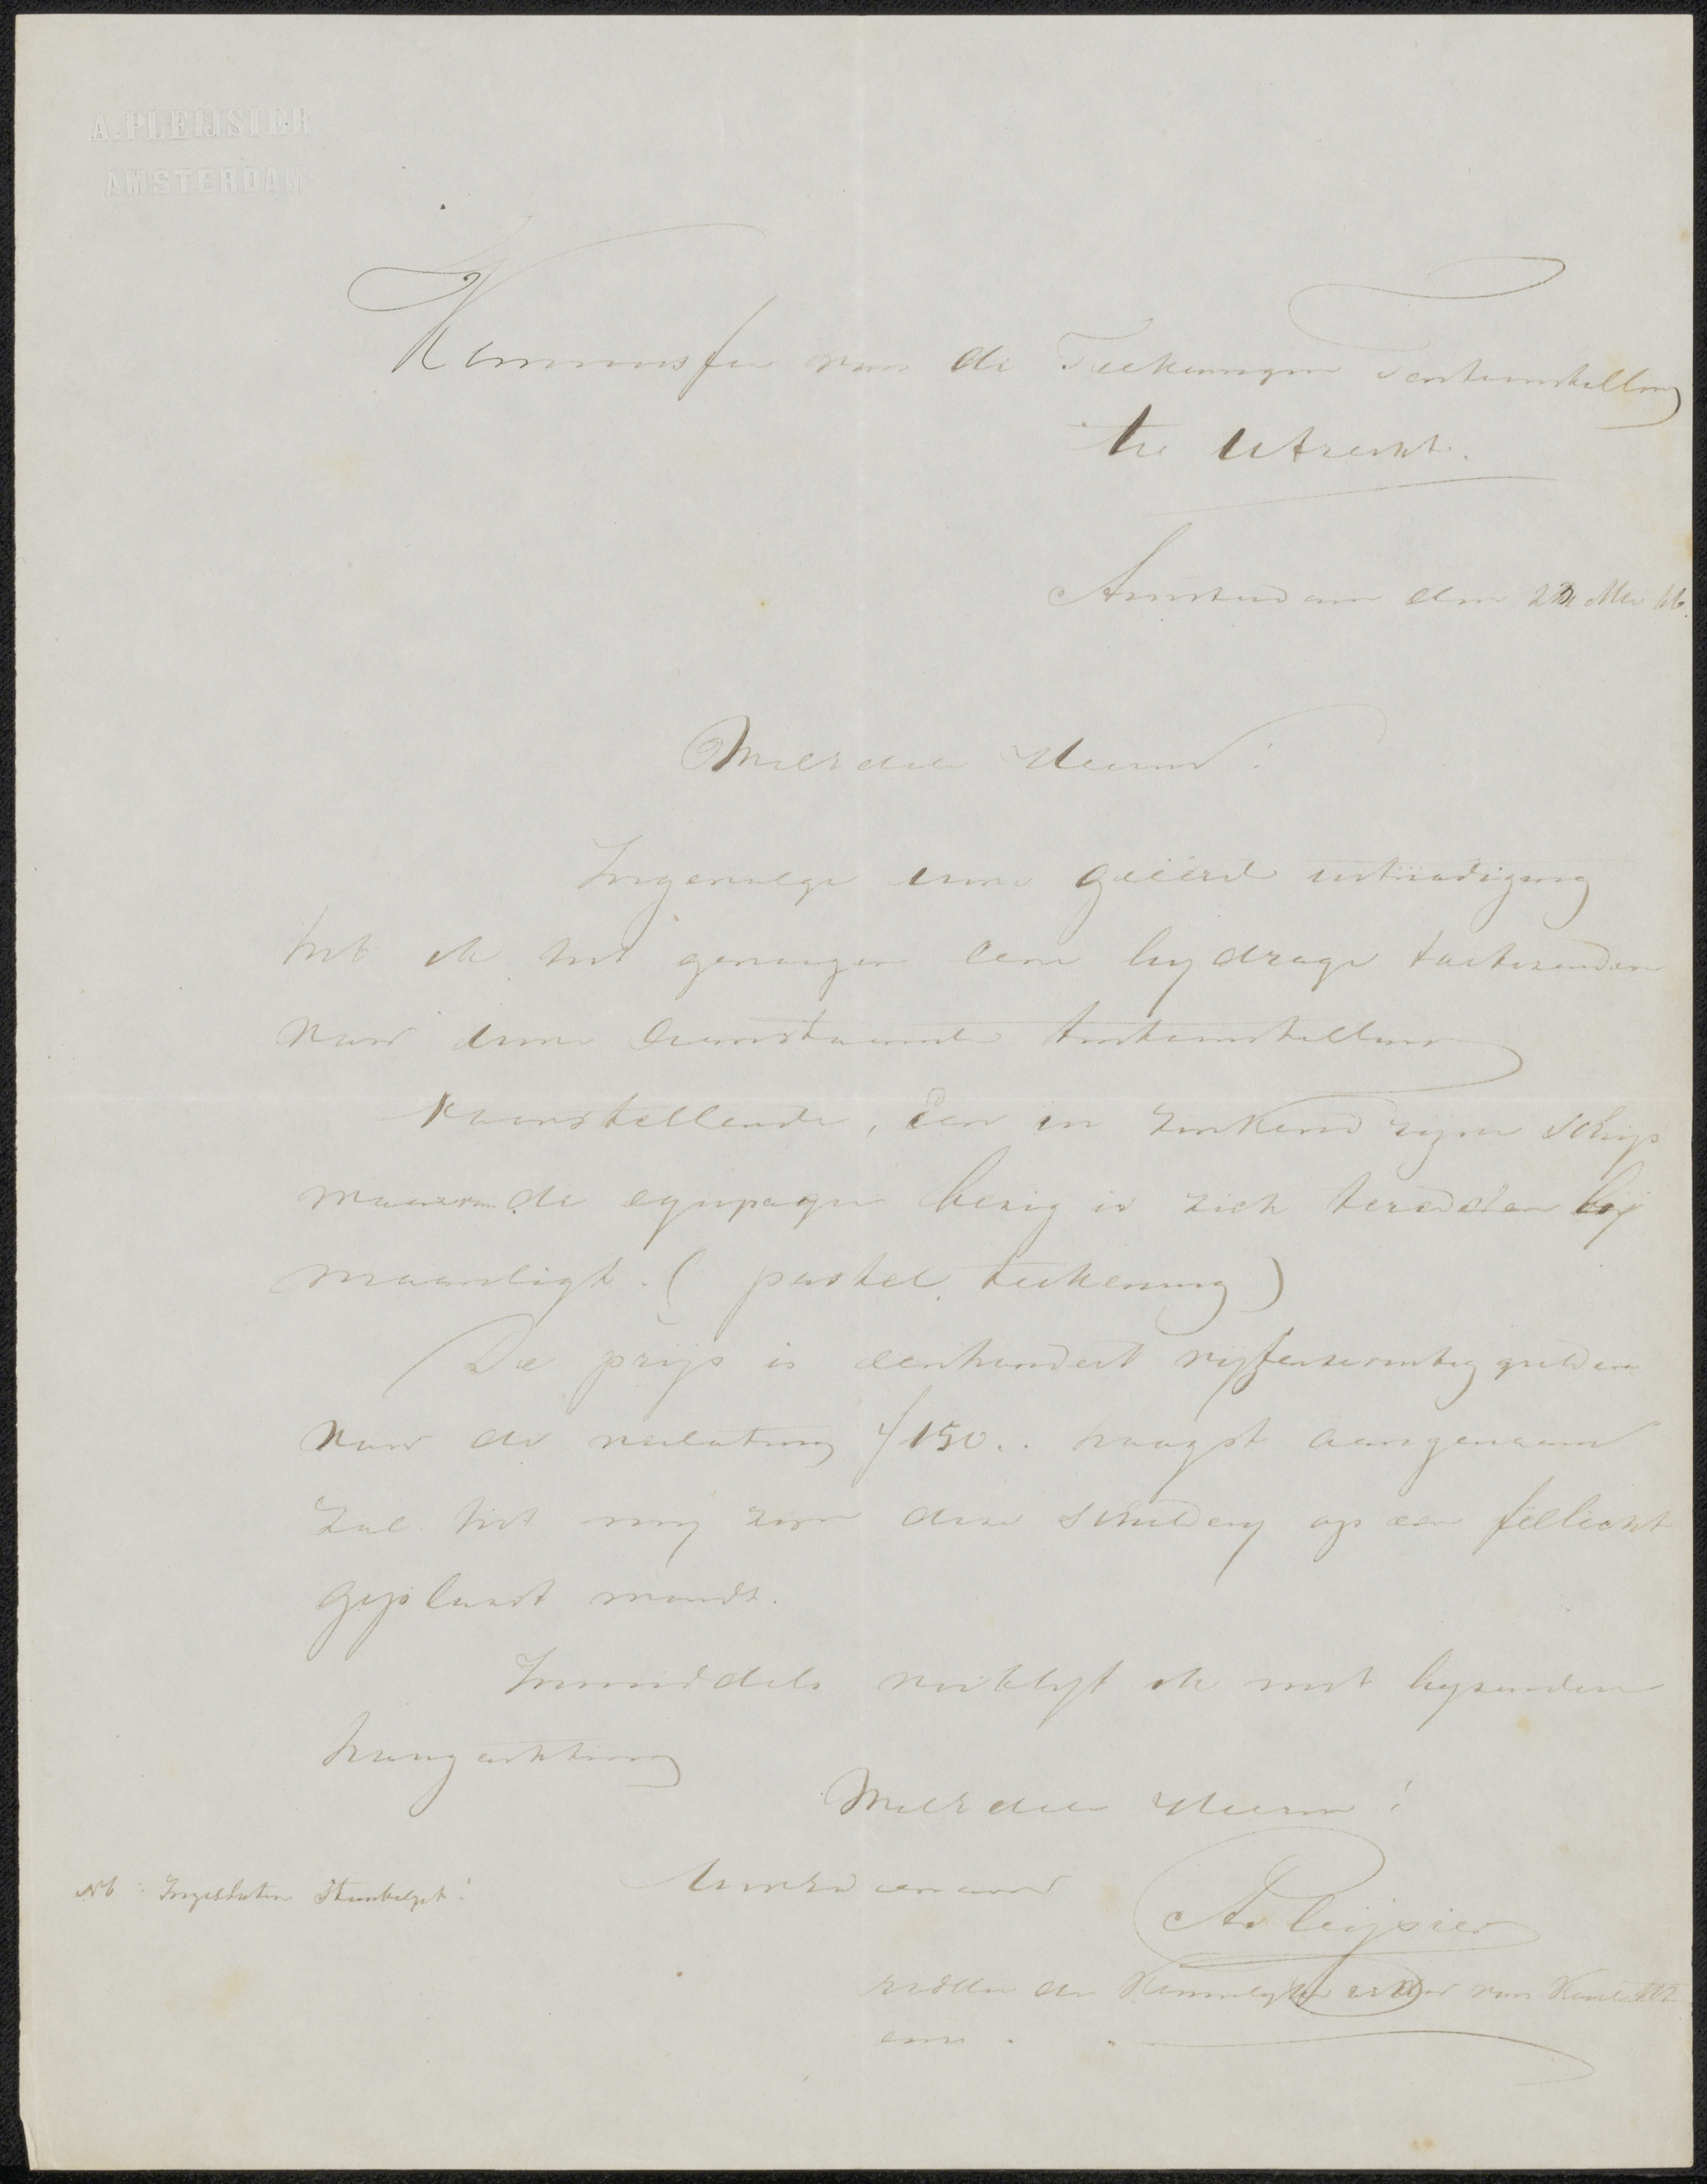 A. PLEIJSIER
AMSTERDAM
Kommissie van de Teekeningen Tentoonstelling
te Utrecht.
Amsterdam den 23 Mei 66.
Weledele Heeren!
Ingevolge uwe geëerd uitnodiging
heb ik het genoegen eene bydrage toetezenden
voor uwe aanstaande tentoonstelling
voorstellende, een in zinkend zijnde schip
waarvan de equipagie bezig is zich teredden bij
maanligt. (pastel teekening)
De prijs is eenhondert vijfenzeventig gulden
voor de verloting f 150.. hoogst aangenaam
zal het mij zijn deze schildery op een fellicht
geplaast wordt.
Inmiddels verblyf ik met byzondere
hoogachting
Weledele Heeren!
NB Ingesloten
Uw
A Pleijsier
ridder de van